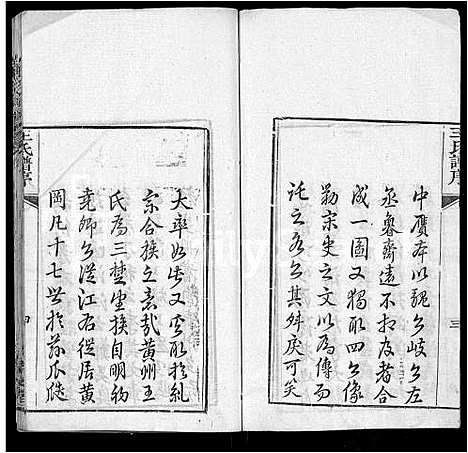 王氏譜序
三
中贋本以魏公岐公左
丞魯齋遠不相及者合
成一圖又獨取四公像
勦宋史之文以為傳而
託之名公其舛戾可笑
大率如此又安取於糾
宗合族之意哉黄州王
氏為三楚望族自明初
堯卿公從江右徙居黄
岡凡十七世於茲瓜瓞
王氏譜序
四